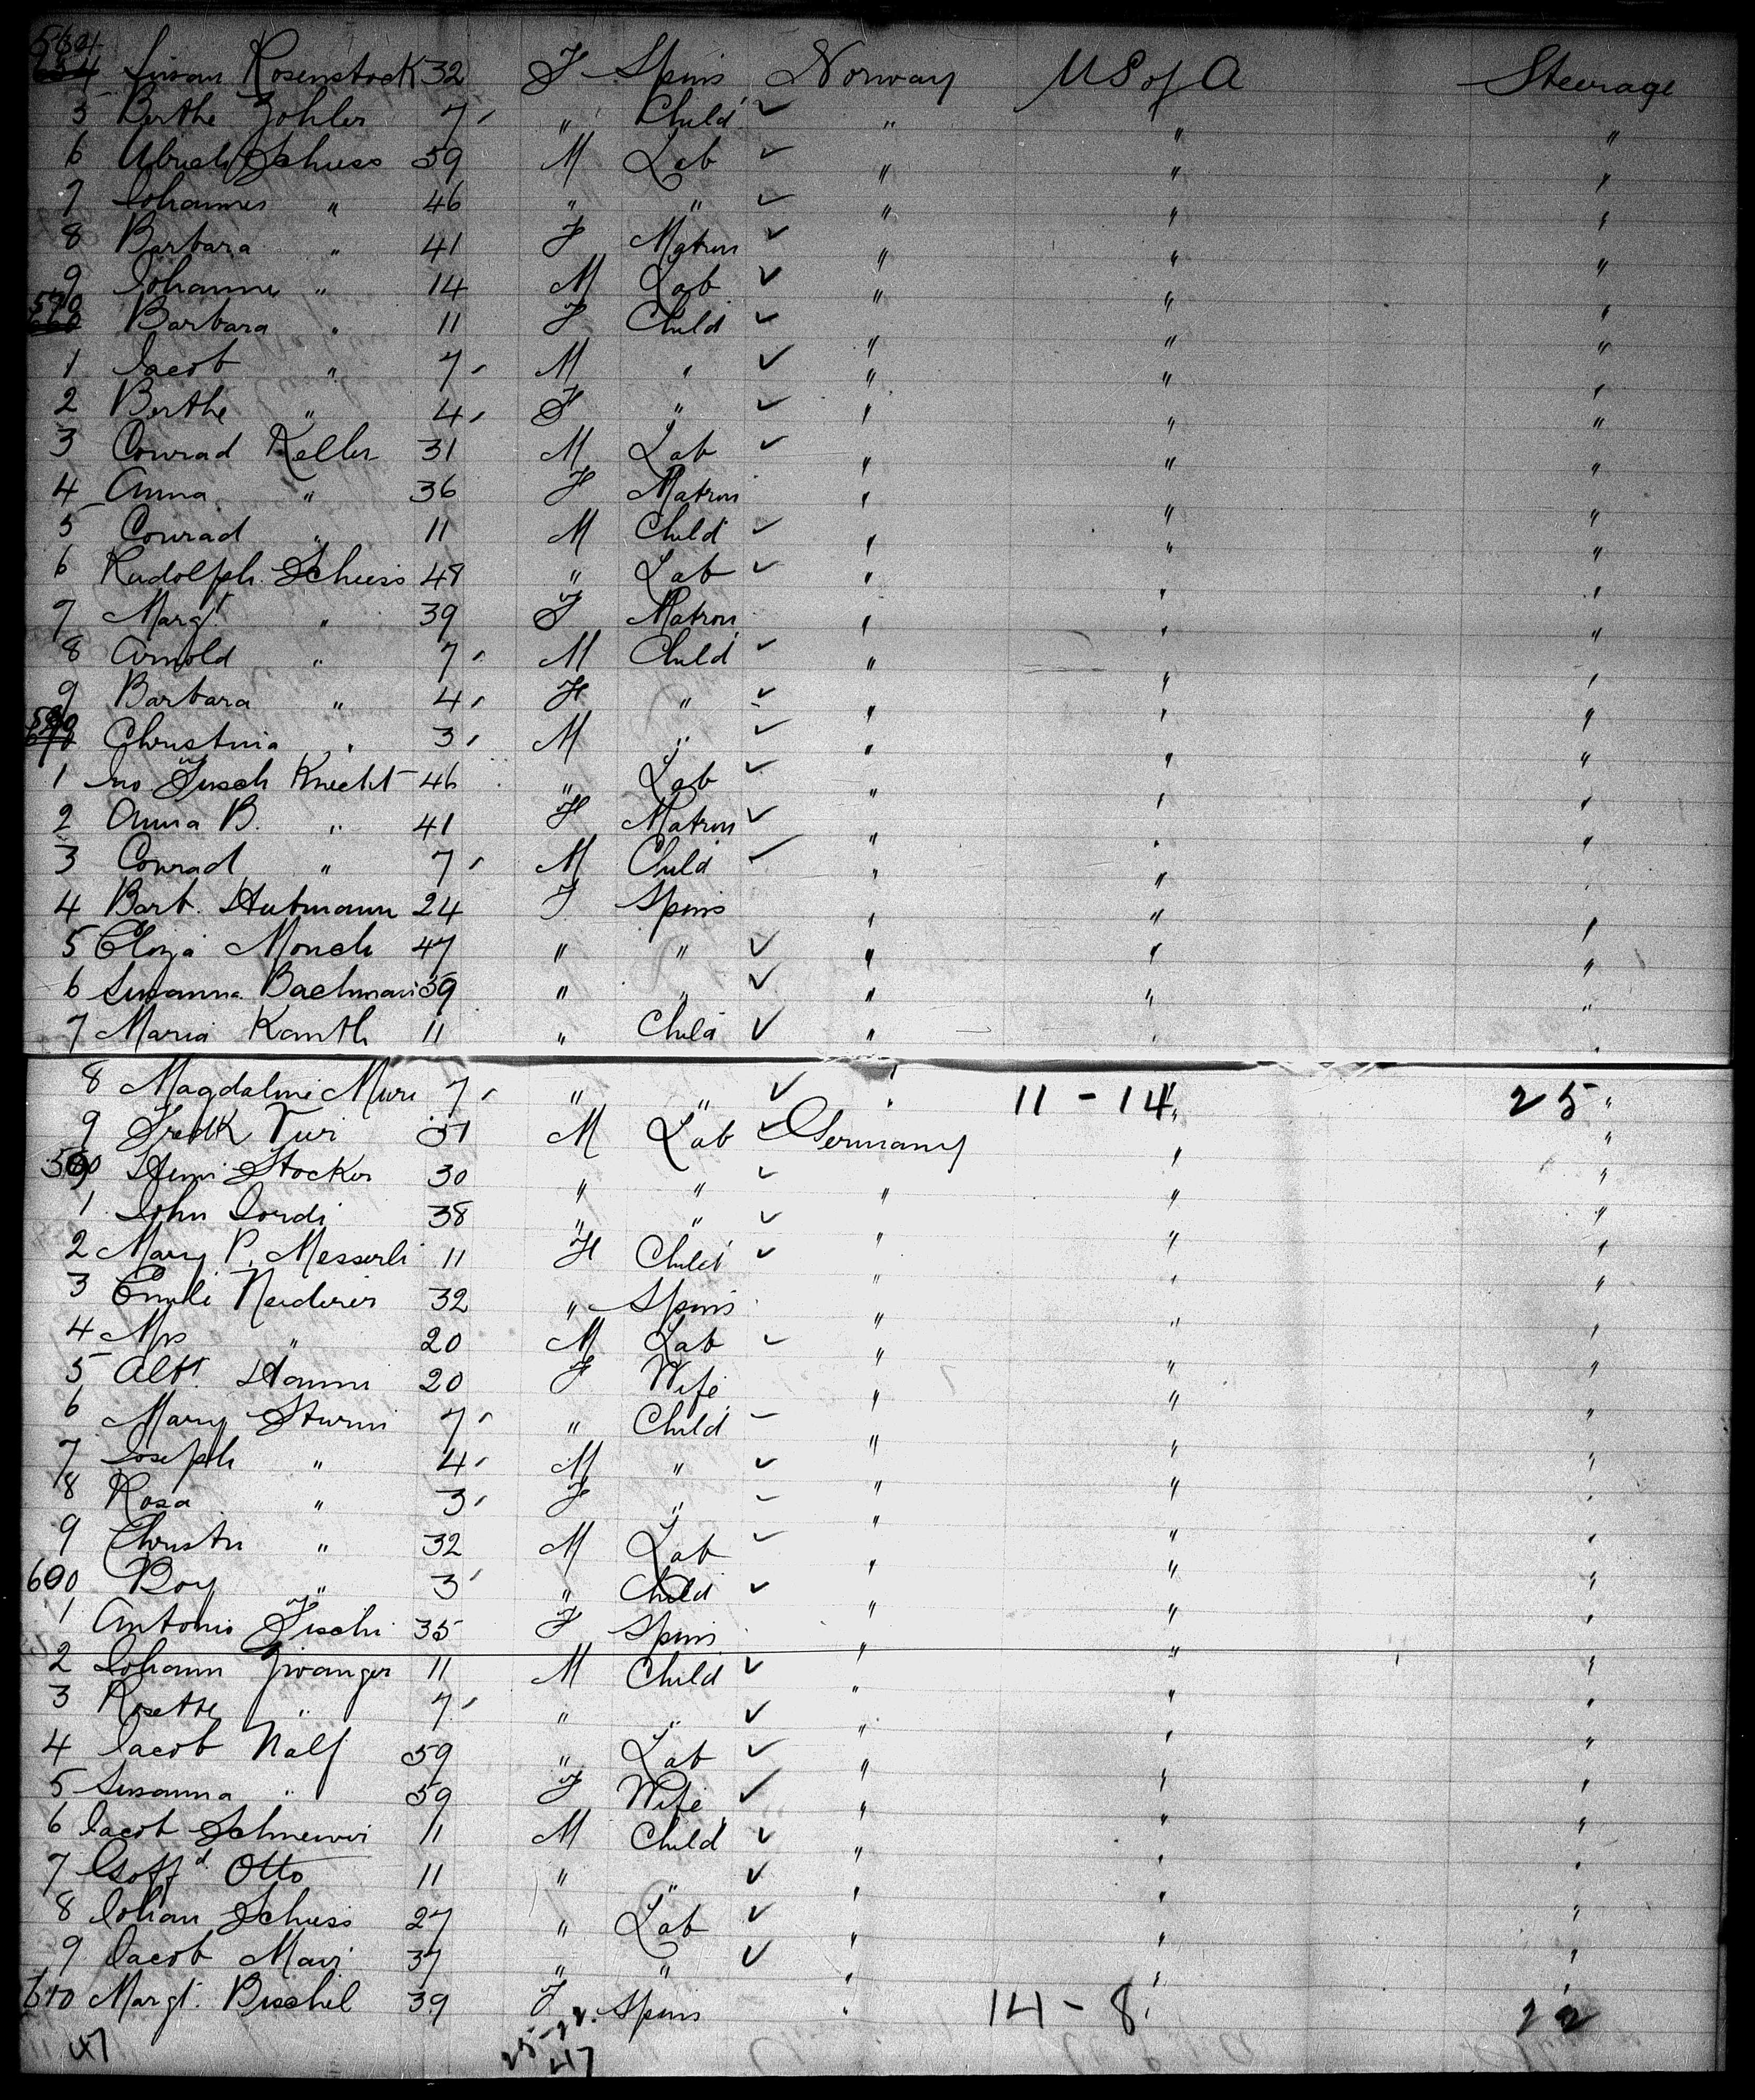 564 Susan Rosenstock 32 F Spins Norway US of A Steerage
5 Berthe Zohler 7 " Child ✓ " " "
6 Ulrich Schiess 59 M Lab ✓ " " "
7 Johannes " 46 " " ✓ " " "
8 Barbara " 41 F Matron ✓ " " "
9 Johannes " 14 M Lab ✓ " " "
570 Barbara " 11 F Child ✓ " " "
1 Jacob " 7 M " ✓ " " "
2 Berthe " 4 F " ✓ " " "
3 Conrad Keller 31 M Lab ✓ " " "
4 Anna " 36 F Matron " " "
5 Conrad " 11 M Child ✓ " " "
6 Rudolph Schiess 48 " Lab ✓ " " "
7 Margt " 39 F Matron " " "
8 Arnold " 7 M Child ✓ " " "
9 Barbara " 4 F " ✓ " " "
580 Christina " 3 M " ✓ " " "
1 Knecht 46 " Lab ✓ " " "
2 Anna B. " 41 F Matron ✓ " " "
3 Conrad " 7 M Child ✓ " " "
4 Barb. Hutmann 24 F Spins " " "
5 Monch 47 " " ✓ " " "
6 Susanna Bachman 39 " " ✓ " " "
7 Maria Kanth 11 " Child ✓ " " "
8 Magdaline Muri 7 " " ✓ " 11 - 14 " 25 "
9 Fredk Turi 31 M Lab ✓ Germany " "
590 Stocker 30 " " ✓ " " "
1 John Jordi 38 " " ✓ " " "
2 Mary P. Messerli 11 F Child ✓ " " "
3 Emili Neiderer 32 " Spins " " "
4 " 20 M Lab ✓ " " "
5 Albt. Hanni 20 F Wife " " "
6 Mary Sturni 7 " Child ✓ " " "
7 Joseph " 4 M " ✓ " " "
8 Rosa " 3 F " ✓ " " "
9 Christn " 32 M Lab ✓ " " "
600 Boy " 3 " Child ✓ " " "
1 Antonio Fischi 35 F Spins " " "
2 Johann Zwanger 11 M Child ✓ " " "
3 Rosette " 7 " " ✓ " " "
4 Jacob Nalf 59 " Lab ✓ " " "
5 Susanna " 59 F Wife ✓ " " "
6 Jacob 11 M Child ✓ " " "
7 Gottfd Otto 11 " " ✓ " " "
8 Johan Schiess 27 " Lab ✓ " " "
9 Jacob Mari 37 " " ✓ " " "
610 Margt. Bischel 39 F Spins " 14 - 8 " 22
47 25-22. 47